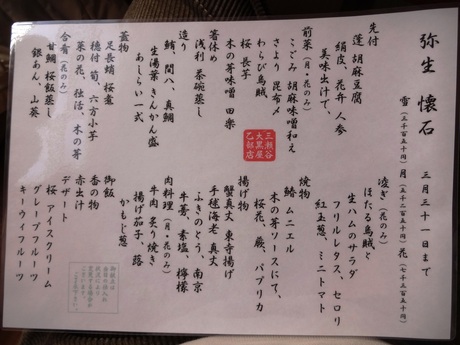 弥生 懐石 三月三十一日まで
雪 月 花(七千三百五十円)
先付
蓬 胡麻豆腐
絹皮、花弁 人参
美味出汁で、
前菜(月・花のみ)
こごみ 胡麻味噌和え
さより 昆布〆
わらび烏賊
桜 長芋
木の芽味噌 田楽
箸休め
浅利 茶碗蒸し
造り
鮪、間八、真鯛
生湯葉 きんかん盛
あしらい一式
蓋物
足長蛸 桜煮
穂付 筍、六方小芋
菜の花、独活、木の芽
合肴(花のみ)
甘鯛 桜飯蒸し
銀あん、山葵
三瀬谷
大黒屋
乙部店
凌ぎ(花のみ)
ほたる烏賊と
生ハムのサラダ
フリルレタス、セロリ
紅玉葱、ミニトマト
焼物
鰆 ムニエル
木の芽ソースにて、
桜花、蕨、パプリカ
揚げ物
蟹真丈 東寺揚げ
手毬海老 真丈
ふきのとう、南京
牛蒡、素塩、檸檬
肉料理(月・花のみ)
牛肉 炙り焼き
揚げ茄子、蕗
かもじ葱
御飯
香の物
赤出汁
デザート
桜 アイスクリーム
グレープフルーツ
キーウィフルーツ